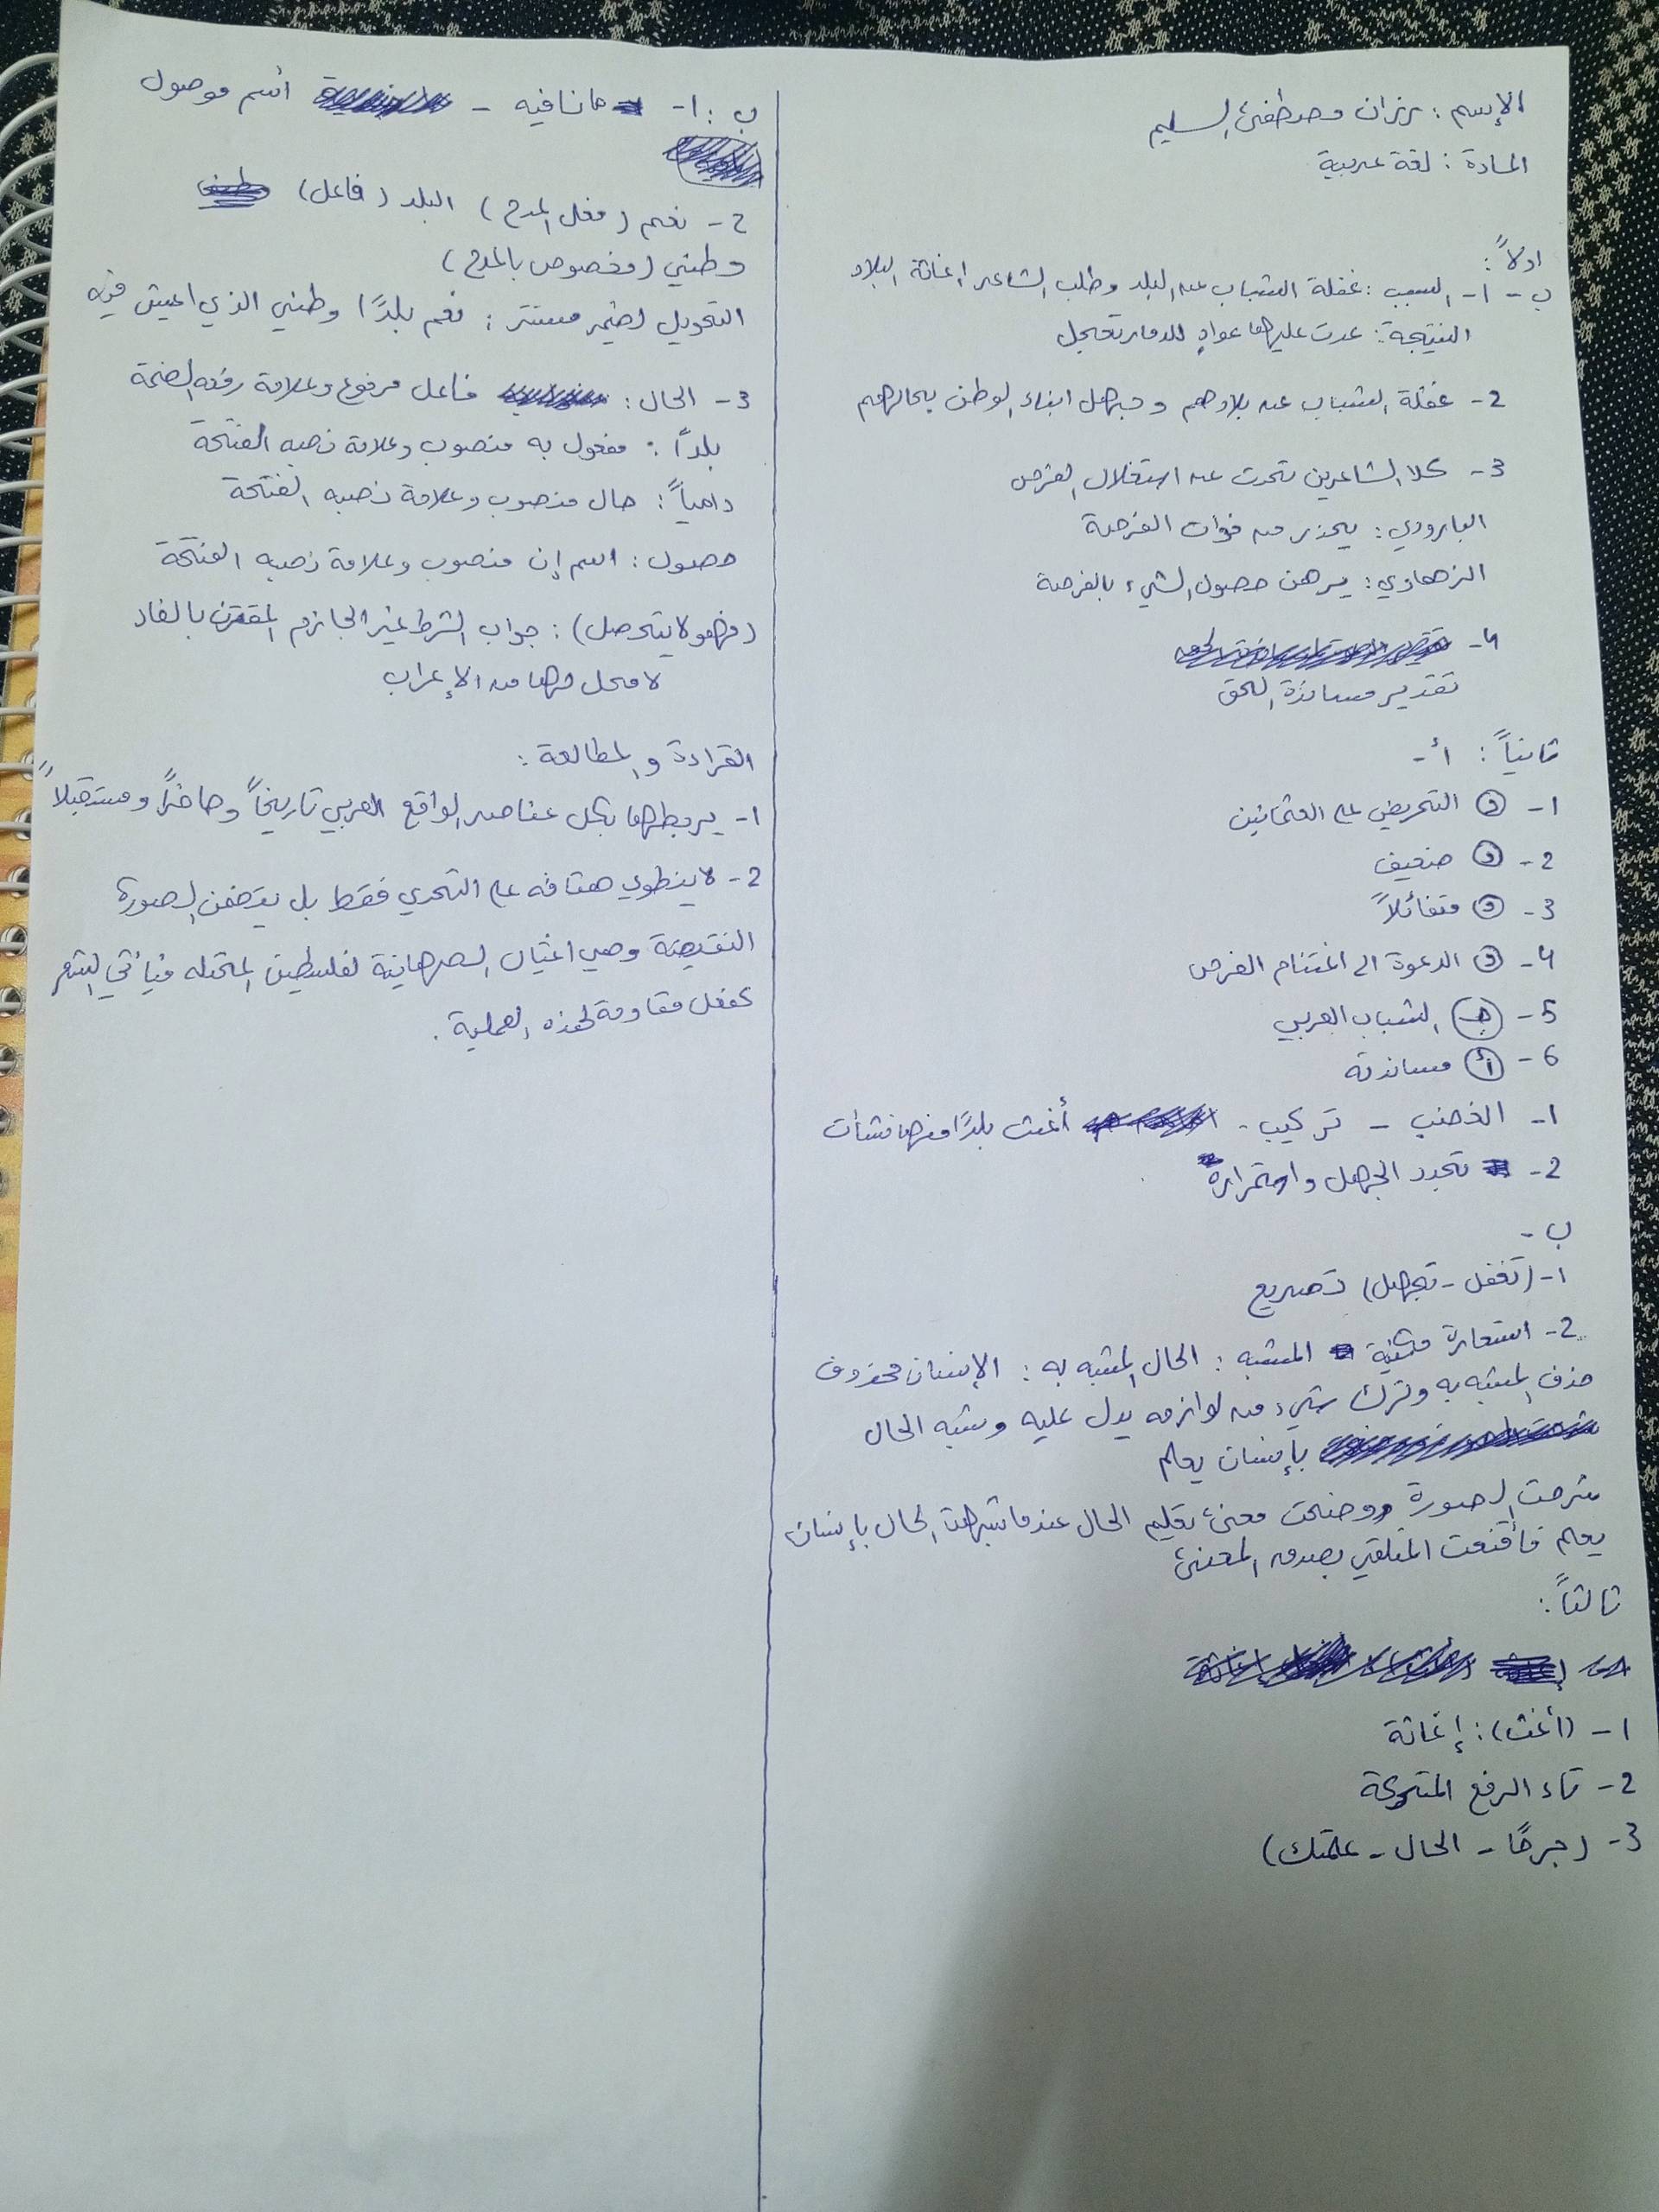 الإسم : رزان مصطفى السليم
المادة : لغة عربية
اولاً :
ب - ١- السبب : غفلة الشباب عن البلد وطلب الشاعر اغاثة البلاد
النتيجة : عدت عليها عوادٍ للدمار تعجل
2- غفلة الشباب عن بلادهم وجهل ابناء الوطن بحالهم
3- كلا الشاعرين تحدث عن استغلال الفرص
البارودي : يحذر من فوات الفرصة
الزهاوي : يرهن حصول الشيء بالفرصة
4-
تقدير مساندة الحق
ثانياً : أ-
١- د التحريض على العثمانين
2- د ضعيف
3- د متفائلاً
4- د الدعوة الى اغتنام الفرص
5- ج الشباب العربي
6- أ مساندته
١- الغضب - تركيب - أغث بلدًا منها نشأت
2- تجدد الجهل واستمراره
ب -
١- (تغفل - تجهل) تصريع
2- استعارة مكنية المشبه : الحال المشبه به : الإنسان محذوف
حذف المشبه به وترك شيء من لوازمه يدل عليه وشبه الحال
بإنسان يعلم
شرحت الصورة ووضحت معنى تعليم الحال عندما شبهت الحال بإنسان
يعلم فأقنعت المتلقي بصدق المعنى
ثالثاً :
١- (أغث) : إغاثة
2- تاء الرفع المتحركة
3- (جرحًا - الحال - علمتك)
ب : ١- ما نافيه - أسم موصول
2- نعم (فعل المدح) البلد (فاعل)
وطني (مخصوص بالمدح)
التحويل لضمير مستتر : نعم بلدًا وطني الذي اعيش فيه
3- الحال : فاعل مرفوع وعلامة رفعه الضمة
بلداً : مفعول به منصوب وعلامة نصبه الفتحة
دامياً : حال منصوب وعلامة نصبه الفتحة
حصول : اسم إن منصوب وعلامة نصبه الفتحة
(فهو لا يتحصل) : جواب الشرط غير الجازم المقترن بالفاء
لا محل لها من الإعراب
القراءة والمطالعة :
١- يربطها بكل عناصر الواقع العربي تاريخاً وحاضراً ومستقبلاً
2- لا ينطوي هتافه على التحدي فقط بل يتضمن الصورة
النقيضة وهي اغتيال الصهاينة لفلسطين المحتله فيأتي الشعر
كفعل مقاومة لهذه العملية .